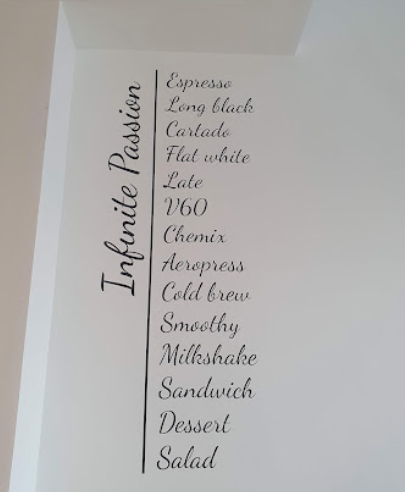 Infinite Passion
Espresso
Long black
Cartado
Flat white
Late
V60
Chemix
Aeropress
Cold brew
Smoothy
Milkshake
Sandwich
Dessert
Salad